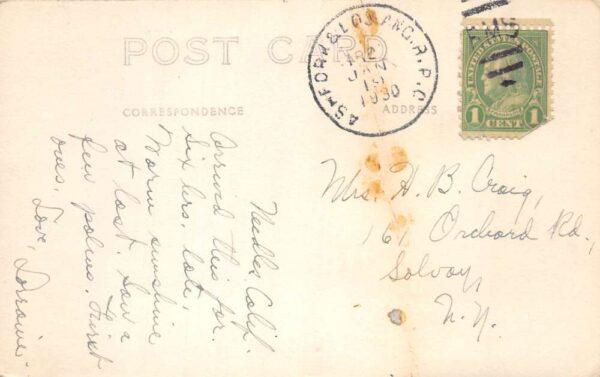 POST CARD
CORRESPONDENCE
ADDRESS
ASH FORK & LOS ANG. R.P.O.
JAN
1930
RMS
UNITED STATES POSTAGE
1 CENT 1
Needles, Calif.
Arrived this far
six hrs. late.
Warm sunshine
at last. Saw a
few palms. First
ones.
Love, Lorraine.
Mrs. H. B. Craig,
161 Orchard Rd.,
Solvay,
N.Y.